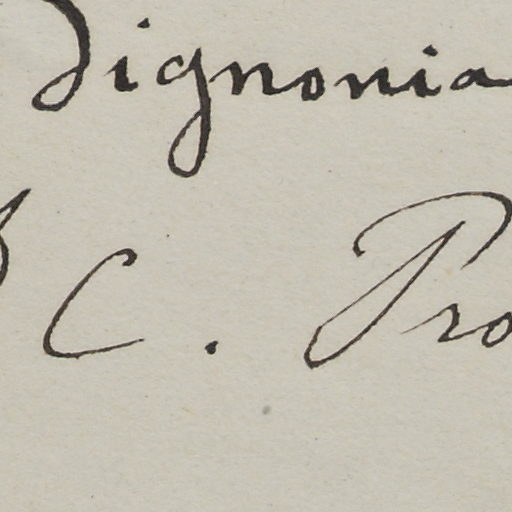 Bignonia
C. Pro